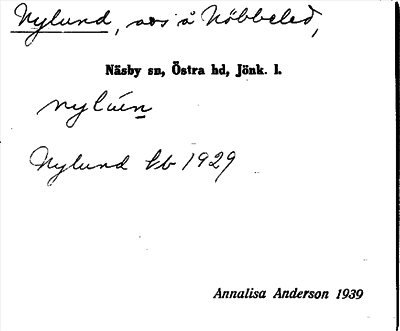 Nylund, avs å Nöbbeled,
Näsby sn, Östra hd, Jönk. l.
nylún
Nylund kb 1929
Annalisa Anderson 1939